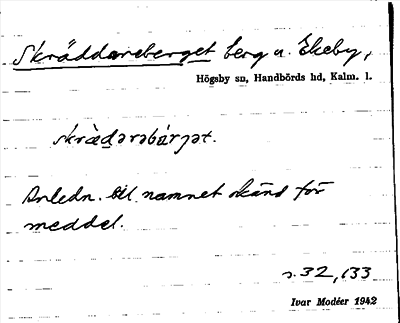 Skräddareberget berg u. Ekeby,
Högsby sn, Handbörds hd, Kalm. l.
skrädarabärjat.
Anledn. till namnet okänd för
meddel.
s. 32, 133
Ivar Modéer 1942